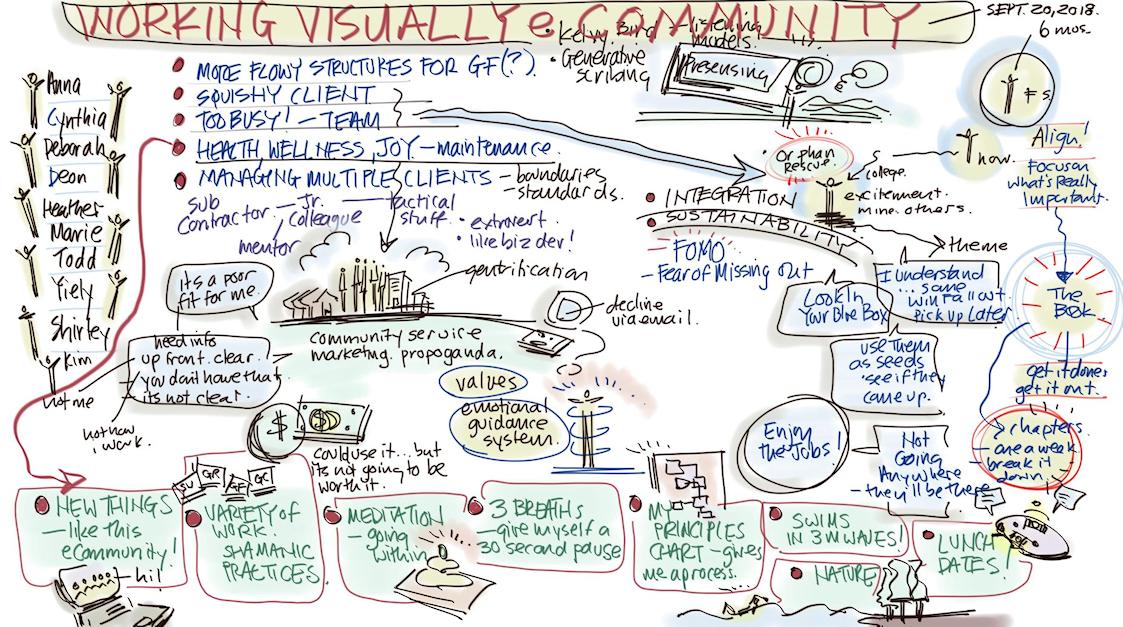 WORKING VISUALLY e COMMUNITY
SEPT. 20, 2018.
6 mos.
Kelvy Bird - listening
models.
Generative
Scribing
Presensing
Anna
Cynthia
Deborah
Deon
Heather
Marie
Todd
Yiely
Shirley
Kim
not me
MORE FLOWY STRUCTURES FOR GF(?).
SQUISHY CLIENT
TOO BUSY! - TEAM
HEALTH, WELLNESS, JOY - maintenance.
MANAGING MULTIPLE CLIENTS - boundaries
- standards.
sub
contractor - Jr. - tactical
colleague stuff.
mentor
extrovert.
like biz dev!
gentrification
its a poor
fit for me.
need info
up front. clear.
you don't have that
its not clear.
not now,
work.
community service
marketing. propoganda.
decline
via email.
values
emotional
guidance
system.
$
$
could use it... but
its not going to be
worth it.
Orphan
Rescue.
college.
excitement.
mine. others.
INTEGRATION
SUSTAINABILITY
FOMO
- Fear of Missing Out
theme
I understand
... same
win fall out.
pick up later.
Look In
Your Blue Box
use them
as seeds
see if they
came up.
Enjoy
the Jobs!
Not
Going
Anywhere
- they'll be there
now.
Align!
Focus on
what's Really
Important.
The
Book
get it done.
get it out.
chapters.
one a week
break it
down.
NEW THINGS
- like this
eCommunity!
hi!
SV GR GF GC
VARIETY of
WORK.
SHAMANIC
PRACTICES.
MEDITATION
- going
within
3 BREATHS
- give myself a
30 second pause
MY
PRINCIPLES
CHART - gives
me a process.
SWIMS
IN 3M WAVES!
NATURE
LUNCH
DATES!